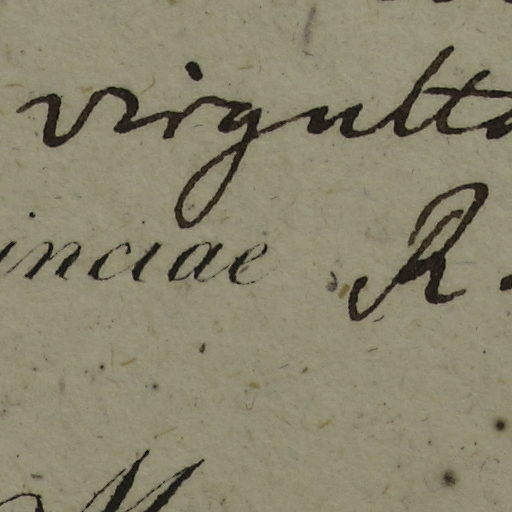 virgulta
inciae R.
M